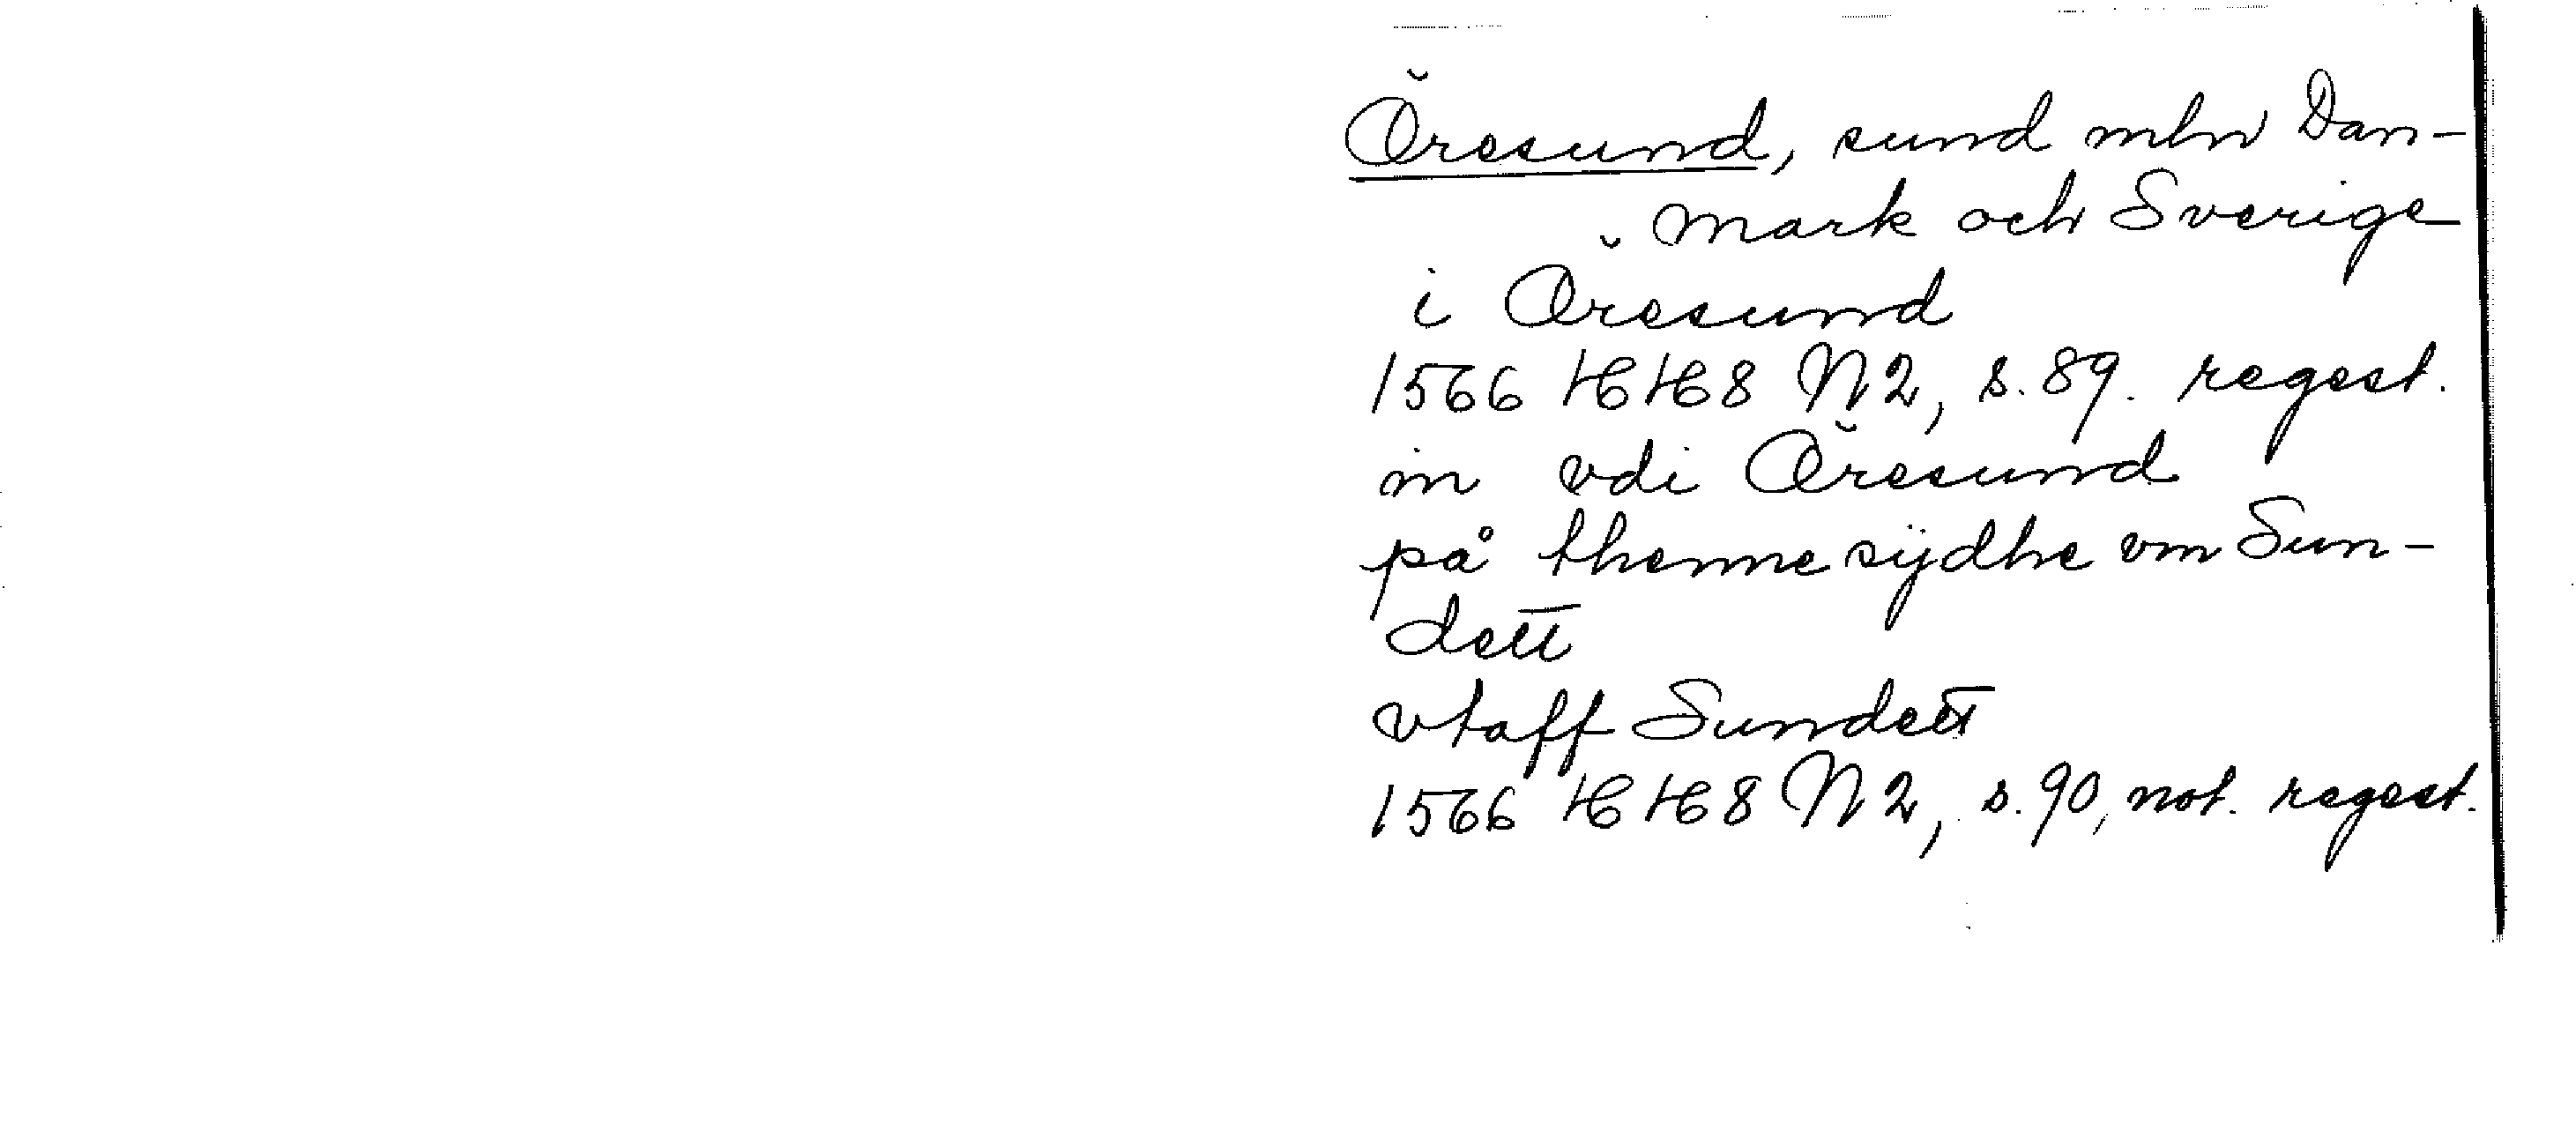 Öresund, sund mln Dan-
mark och Sverige
i Öresund
1566 HH 8 N 2, s. 89. regest.
in vdi Öresund
på thenne sijdhe vm Sun-
dett
vtaff Sundett
1566 HH 8 N 2, s. 90, not. regest.